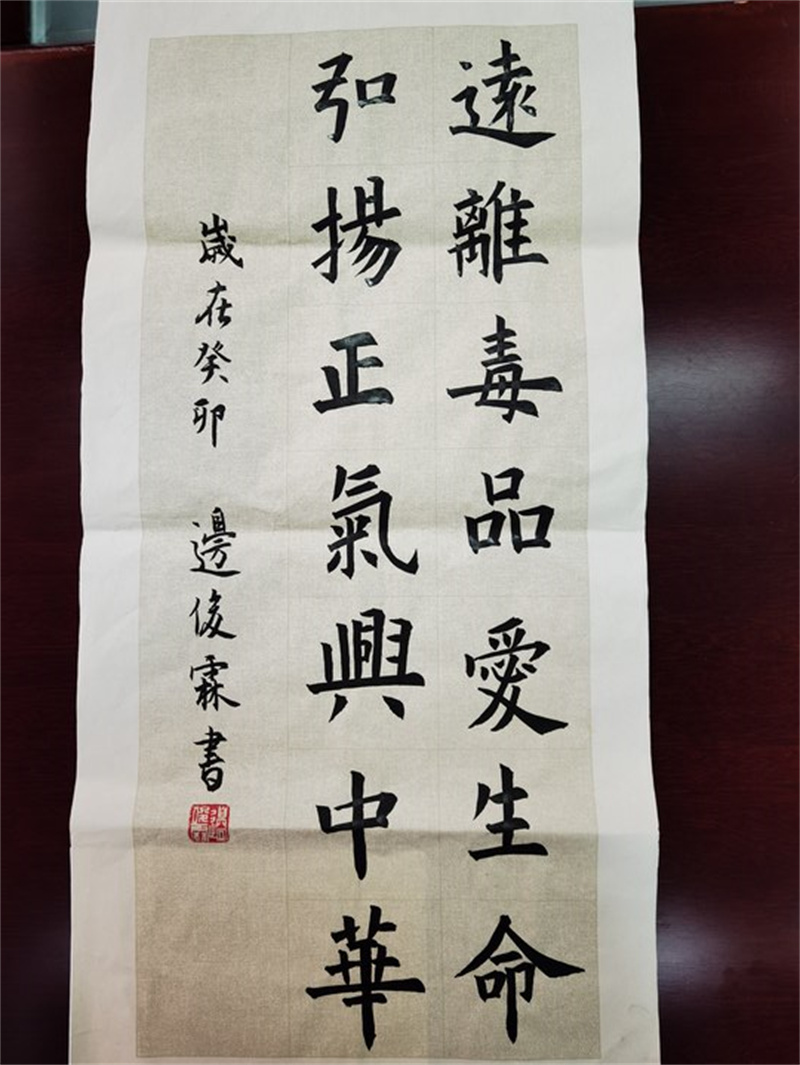 遠離毒品愛生命
弘揚正氣興中華
歲在癸卯 邊俊霖書